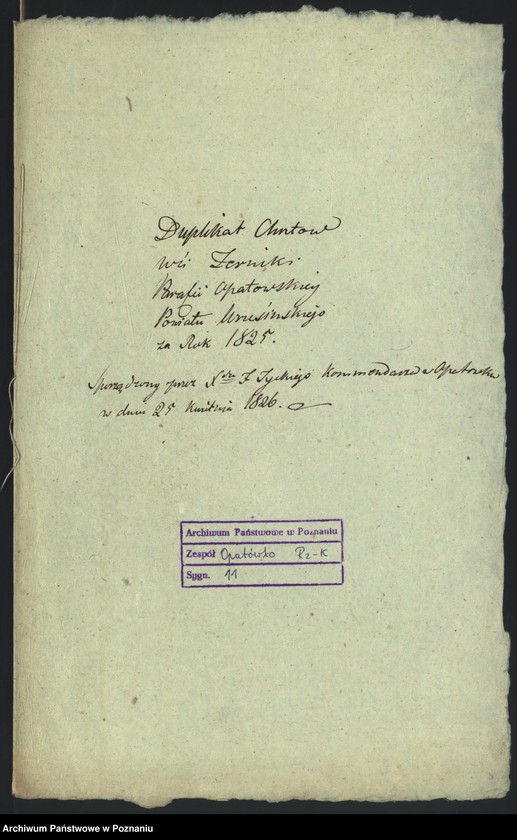 Duplikat Chrztów
wsi Zerniki
Parafii Opatowskiej
Powiatu Wresinskiego
za Rok 1825.
Sporządzony przez Xdza J Tyckiego kommendarza w Opatowku
w dniu 25 Kwietnia 1826.
Archiwum Państwowe w Poznaniu
Zespół Opatówko Rz-K
Sygn. 11
Archiwum Państwowe w Poznaniu